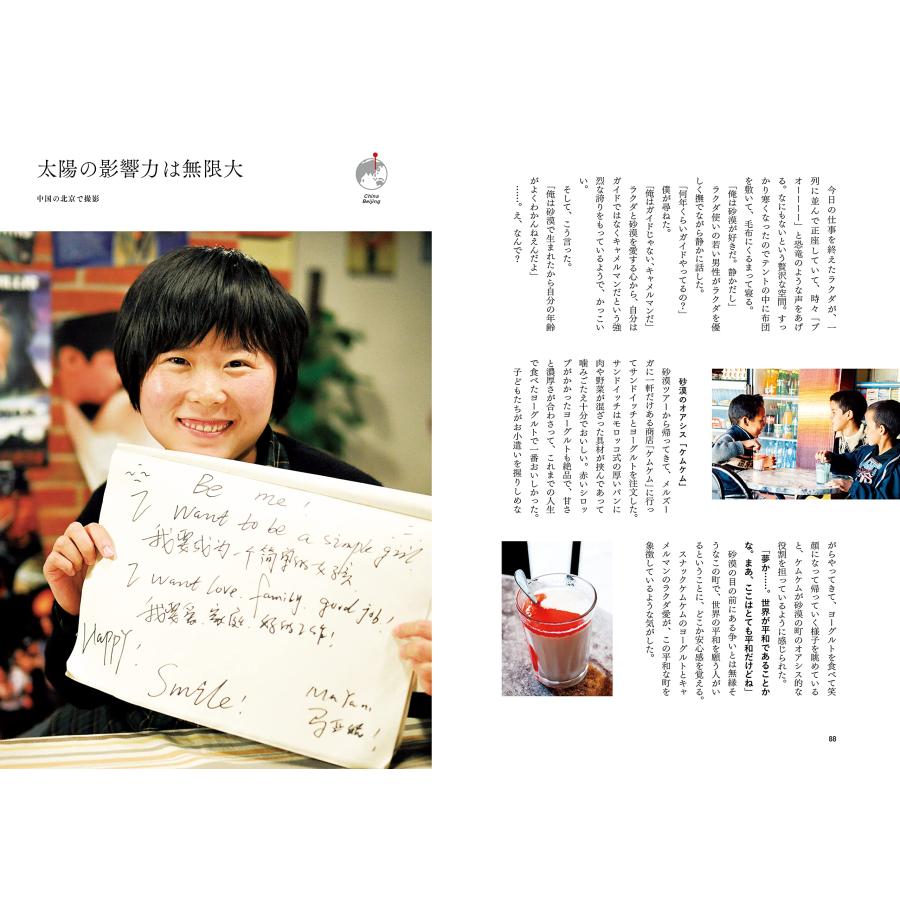 太陽の影響力は無限大
中国の北京で撮影
China
Beijing
Be me!
I want to be a simple girl
我要成为一个简单的女孩
I want love. family. good job!
我要爱.家庭.好的工作!
Happy!
Smile!
Ma Yan.
今日の仕事を終えたラクダが、一
列に並んで正座していて、時々「ブ
オーーーー」と恐竜のような声をあげ
る。なにもないという贅沢な空間。すっ
かり寒くなったのでテントの中に布団
を敷いて、毛布にくるまって寝る。
「俺は砂漠が好きだ。静かだし」
ラクダ使いの若い男性がラクダを優
しく撫でながら静かに話した。
「何年くらいガイドやってるの?」
僕が尋ねた。
「俺はガイドじゃない、キャメルマンだ」
ラクダと砂漠を愛する心から、自分は
ガイドではなくキャメルマンだという強
烈な誇りをもっているようで、かっこい
い。
そして、こう言った。
「俺は砂漠で生まれたから自分の年齢
がよくわかんねえんだよ」
……。え、なんで?
砂漠のオアシス「ケムケム」
砂漠ツアーから帰ってきて、メルズー
ガに一軒だけある商店「ケムケム」に行っ
てサンドイッチとヨーグルトを注文した。
サンドイッチはモロッコ式の厚いパンに
肉や野菜が混ざった具材が挟んであって
噛みごたえ十分でおいしい。赤いシロッ
プがかかったヨーグルトも絶品で、甘さ
と濃厚さが合わさって、これまでの人生
で食べたヨーグルトで一番おいしかった。
子どもたちがお小遣いを握りしめな
がらやってきて、ヨーグルトを食べて笑
顔になって帰っていく様子を眺めている
と、ケムケムが砂漠の町のオアシス的な
役割を担っているように感じられた。
「夢か……。世界が平和であることか
な。まあ、ここはとても平和だけどね」
砂漠の目の前にある争いとは無縁そ
うなこの町で、世界の平和を願う人がい
るということに、どこか安心感を覚える。
スナックケムケムのヨーグルトとキャ
メルマンのラクダ愛が、この平和な町を
象徴しているような気がした。
88